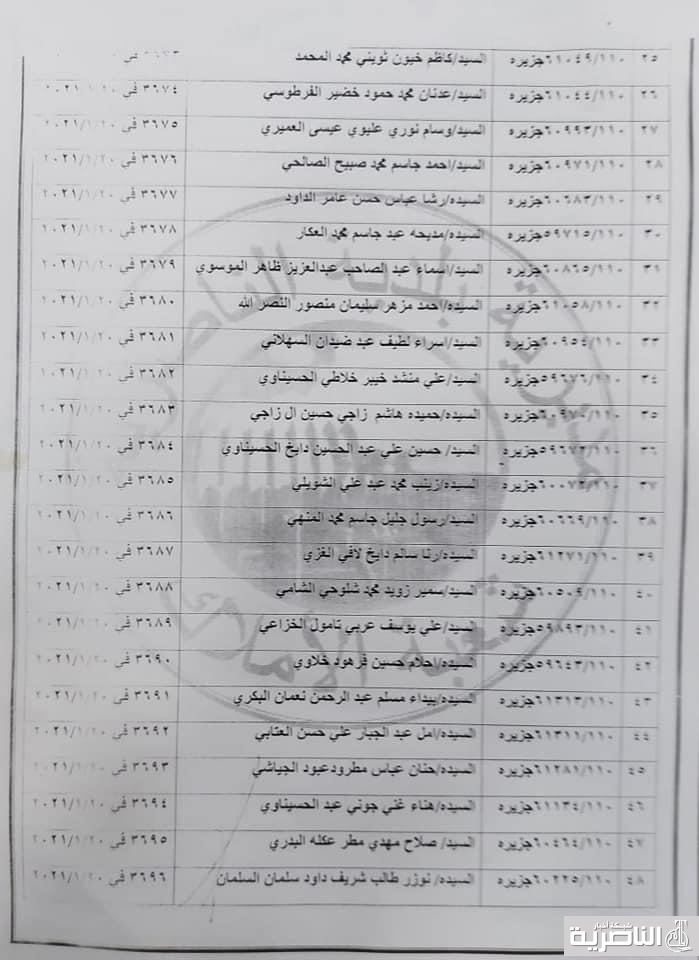 ٢٥ ٦١٠٤٩/١١٠جزيره السيد/كاظم خيون ثويني محمد المحمد ٣٦٧٣ في
٢٦ ٦١٠٤٤/١١٠جزيره السيد/عدنان محمد حمود خضير الفرطوسي ٣٦٧٤ في ٢٠٢١/١/٢٠
٢٧ ٦٠٩٩٣/١١٠جزيره السيد/وسام نوري عليوي عيسى العميري ٣٦٧٥ في ٢٠٢١/١/٢٠
٢٨ ٦٠٩٧١/١١٠جزيره السيد/احمد جاسم محمد صبيح الصالحي ٣٦٧٦ في ٢٠٢١/١/٢٠
٢٩ ٦٠٦٨٣/١١٠جزيره السيده/رشا عباس حسن عامر الداود ٣٦٧٧ في ٢٠٢١/١/٢٠
٣٠ ٥٩٧١٥/١١٠جزيره السيده/مديحه عبد جاسم محمد العكار ٣٦٧٨ في ٢٠٢١/١/٢٠
٣١ ٦٠٨٦٥/١١٠جزيره السيد/اسماء عبد الصاحب عبدالعزيز ظاهر الموسوي ٣٦٧٩ في ٢٠٢١/١/٢٠
٣٢ ٦١٠٥٨/١١٠جزيره السيده/احمد مزهر سليمان منصور النصر الله ٣٦٨٠ في ٢٠٢١/١/٢٠
٣٣ ٦٠٩٥٤/١١٠جزيره السيد/اسراء لطيف عبد ضيدان السهلاني ٣٦٨١ في ٢٠٢١/١/٢٠
٣٤ ٥٩٦٧٦/١١٠جزيره السيد/علي منشد خيبر خلاطي الحسيناوي ٣٦٨٢ في ٢٠٢١/١/٢٠
٣٥ ٦٠٩٧٠/١١٠جزيره السيده/حميده هاشم زاجي حسين ال زاجي ٣٦٨٣ في ٢٠٢١/١/٢٠
٣٦ ٥٩٦٧٢/١١٠جزيره السيد/ حسين علي عبد الحسين دايخ الحسيناوي ٣٦٨٤ في ٢٠٢١/١/٢٠
٣٧ ٦٠٠٧٢/١١٠جزيره السيده/زينب محمد عبد علي الشويلي ٣٦٨٥ في ٢٠٢١/١/٢٠
٣٨ ٦٠٦٦٩/١١٠جزيره السيد/رسول جليل جاسم محمد المنهي ٣٦٨٦ في ٢٠٢١/١/٢٠
٣٩ ٦١٢٧١/١١٠جزيره السيده/رنا سالم دايخ لافي الغزي ٣٦٨٧ في ٢٠٢١/١/٢٠
٤٠ ٦٠٥٠٩/١١٠جزيره السيد/سمير زويد محمد شلوحي الشامي ٣٦٨٨ في ٢٠٢١/١/٢٠
٤١ ٥٩٨٩٣/١١٠جزيره السيد/علي يوسف عربي تامول الخزاعي ٣٦٨٩ في ٢٠٢١/١/٢٠
٤٢ ٥٩٦٤٣/١١٠جزيره السيده/احلام حسين فرهود خلاوي ٣٦٩٠ في ٢٠٢١/١/٢٠
٤٣ ٦١٣١٣/١١٠جزيره السيده/بيداء مسلم عبد الرحمن نعمان البكري ٣٦٩١ في ٢٠٢١/١/٢٠
٤٤ ٦١٣١١/١١٠جزيره السيده/امل عبد الجبار علي حسن العتابي ٣٦٩٢ في ٢٠٢١/١/٢٠
٤٥ ٦١٢٨١/١١٠جزيره السيده/حنان عباس مطرودعبود الجياشي ٣٦٩٣ في ٢٠٢١/١/٢٠
٤٦ ٦١١٣٤/١١٠جزيره السيده/هناء غني جوني عبد الحسيناوي ٣٦٩٤ في ٢٠٢١/١/٢٠
٤٧ ٦٠٤٦٤/١١٠جزيره السيد/ صلاح مهدي مطر عكله البدري ٣٦٩٥ في ٢٠٢١/١/٢٠
٤٨ ٦٠٢٢٥/١١٠جزيره السيده/ نوزر طالب شريف داود سلمان السلمان ٣٦٩٦ في ٢٠٢١/١/٢٠
مديرية بلدية الناصرية
شعبة الأملاك
شبكة أخبار
الناصرية